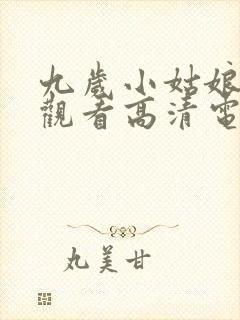 九歲小姑娘
觀看高清電
丸美甘